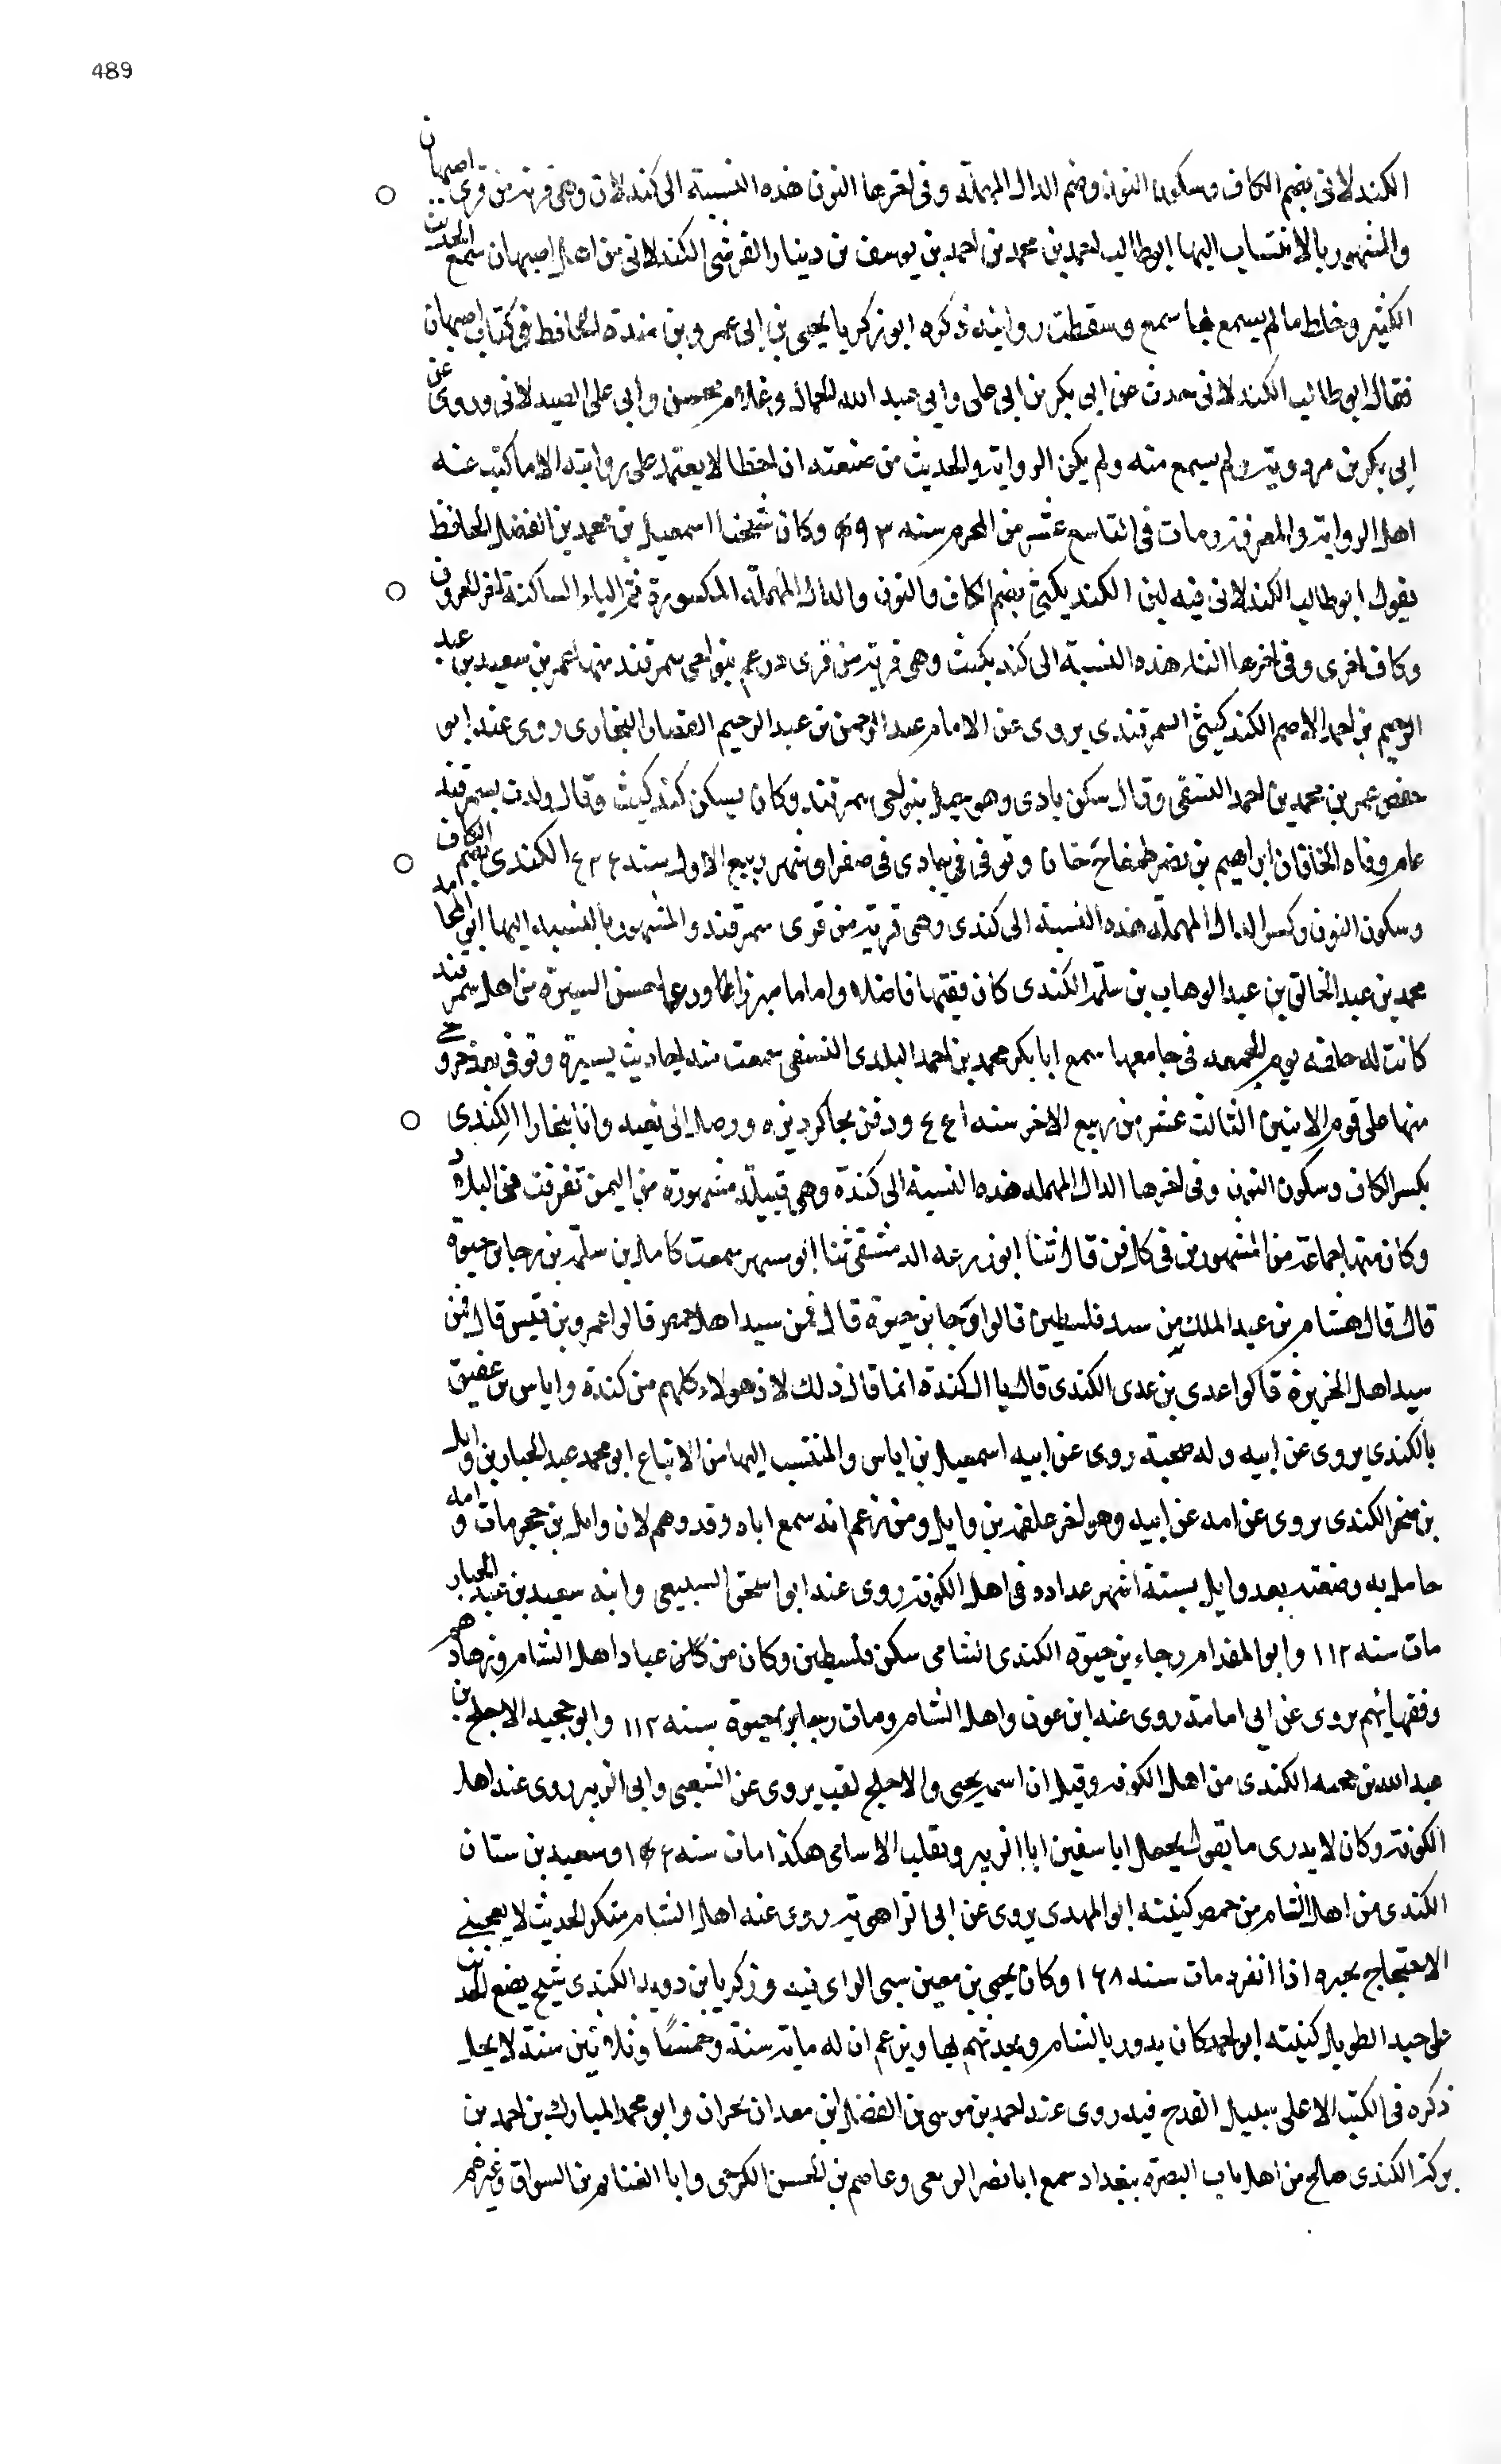 489
الكندلانى بضم الكاف وسكون النون وضم الدال المهملة وفى اخرها النون هذه النسبة الى كندلان وهى قرية من قرى اصبهان
والمشهور بالانتساب اليها ابو طالب احمد بن محمد بن احمد بن يوسف بن دينار القرشى الكندلانى من اهل اصبهان سمع الحديث
الكثير وخلط ما لم يسمع بما سمع وسقطت روايته ذكره ابو زكريا يحيى بن ابى عمرو بن مندة الحافظ فى كتاب اصبهان
فقال ابو طالب الكندلانى حدث عن ابى بكر بن ابى على وابى عبد الله الجمال وغلام محسن وابى على الصيدلانى وروى عن
ابى بكر بن مردويه ولم يسمع منه ولم يكن الرواية والحديث من صنعته ان اخطا لا يعتمد على روايته الا ما كتب عنه
اهل الرواية والمعرفة ومات فى التاسع عشر من المحرم سنه ۴۹۳ وكان شيخنا اسمعيل بن محمد بن الفضل الحافظ
يقول ابو طالب الكندلانى فيه لين الكنديكثى بضم الكاف والنون والدال المهملة المكسورة ثم الياء الساكنة اخر الحروف
وكاف اخرى وفى اخرها الثاء هذه النسبة الى كنديكث وهى قرية من قرى درغم بنواحى سمرقند منها احمد بن سعيد بن عبد
الرحيم بن احمد الاصم الكنديكثى السمرقندى يروى عن الامام عبد الرحمن بن عبد الرحيم القصار البخارى روى عنه ابو
حفص عمر بن محمد بن احمد النسفى وقال سكن يادى وهو ميل بنواحى سمرقند وكان يسكن كنديكث وقال ولدت بسمرقند
عام وفاه الخاقان ابراهيم بن نصر طمغاج خان وتوفى فى يادى فى صفر او شهر ربيع الاول سنه الكندى بضم الكاف
وسكون النون وكسر الدال المهملة هذه النسبة الى كندى وهى قرية من قرى سمرقند والمشهور بالنسبه اليها ابو المحامد
محمد بن عبد الخالق بن عبد الوهاب بن سلمة الكندى كان فقيها فاضلا واماما مبرزا ورعا حسن السيرة من اهل سمرقند
كانت له حلقه يوم الجمعه فى جامعها سمع ابا بكر محمد بن احمد البلدى النسفى سمعت منه احاديث يسيرة وتوفى بعد خروجى
منها على قوم الاثنين الثالث عشر من ربيع الاخر سنه ودفن بجاكرديزه ووصل الى نعيه وانا ببخارا الكِندى
بكسر الكاف وسكون النون وفى اخرها الدال المهمله هذه النسبة الى كندة وهى قبيلة مشهورة من اليمن تفرقت فى البلاد
وكان منها جماعة من المشهورين فى كل فن قال ثنا ابو زرعه الدمشقى ثنا ابو مسهر سمعت كامل بن سلمة بن رجا بن حيوة
قال قال هشام بن عبد الملك من سيد فلسطين قالوا رجا بن حيوة قال فمن سيد اهل حمص قالوا عمرو بن قيس قال فمن
سيد اهل الجزيرة قالوا عدى بن عدى الكندى قال يا ال كندة انما قال ذلك لان هولاء كلهم من كندة واياس بن عفيق
بالكندي يروى عن ابيه وله صحبة روى عن ابيه اسمعيل بن اياس والمنتسب اليها من الاتباع ابو محمد عبد الجبار بن وايل
بن حجر الكندى يروى عن امه عن ابيه وهو اخو علقمة بن وايل ومن زعم انه سمع اباه وقد وهم لان وايل بن حجر مات وامه
حامل به وضعته بعد وايل بستة اشهر عداده فى اهل الكوفة روى عنه ابو اسحق السبيعى وابنه سعيد بن عبد الجبار
مات سنه ۱۱۲ وابو المقدام رجاء بن حيوة الكندى الشامى سكن فلسطين وكان من كان عباد اهل الشام وزهادهم
وفقهائهم يروى عن ابى امامة روى عنه ابن عون واهل الشام ومات رجا بن حيوة سنه ۱۱۲ وابو حجيه الاجلح بن
عبد الله بن حجيه الكندى من اهل الكوفه وقيل ان اسمه يحيى والاجلح لقب يروى عن الشعبى وابى الزبير روى عنه اهل
الكوفة وكان لا يدرى ما يقول يجعل ابا سفين ابا الزبير ويقلب الاسامى هكذا مات سنه ۱۴۶ وسعيد بن سنان
الكندى من اهل الشام من حمص كنيته ابو المهدى يروى عن ابى الزاهرية روى عنه اهل الشام منكر الحديث لا يعجبنى
الاحتجاج بخبره اذا انفرد مات سنه ۱۶۸ وكان يحيى بن معين سيى الراى فيه وزكريا بن دويد الكندى شيخ يضع الحديث
على حميد الطويل كنيته ابو احمد كان يدور بالشام ويحدثهم بها ويزعم ان له ماية سنة وخمسًا وثلاثين سنة لا يحل
ذكره فى الكتب الا على سبيل القدح فيه روى عنه احمد بن موسى بن الفضل ابن معدان بحران وابو محمد المبارك بن احمد بن
بركة الكندى صالح من اهل باب البصره ببغداد سمع ابا نصر الزينبى وعاصم بن الحسن الكرخى وابا الغنائم بن السواق وغيرهم